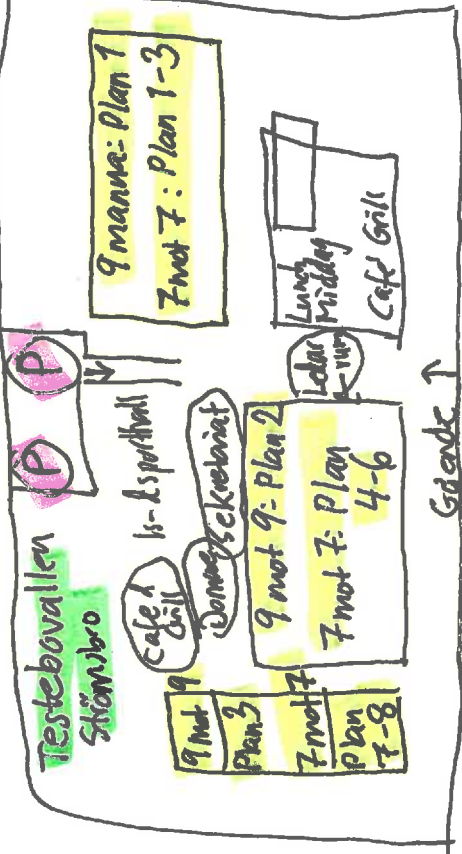 Testebovallen
Strömsbro
P
P
Is- & sporthall
Café &
Grill
Domare
Sekretariat
9 manna: Plan 1
7 mot 7: Plan 1-3
9 mot 9
Plan 3
7 mot 7
Plan
7-8
9 mot 9: Plan 2
7 mot 7: Plan
4-6
Ledar
rum
Lunch
Middag
Café Grill